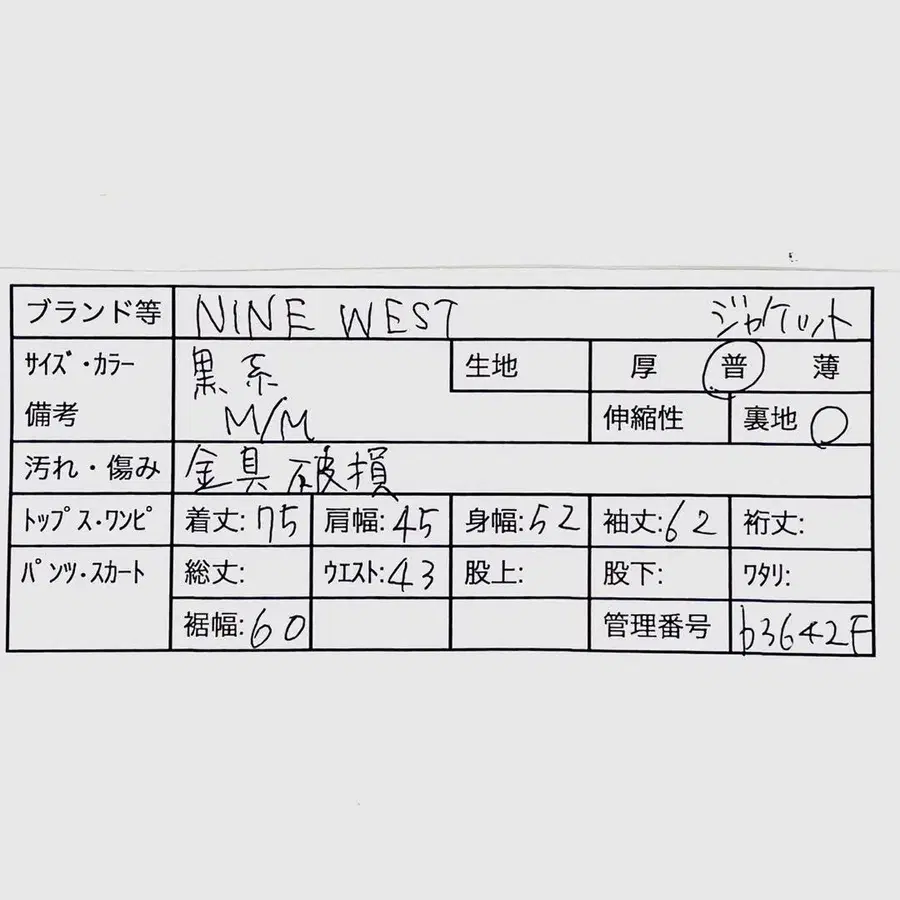 ブランド等 NINE WEST ジャケット
サイズ・カラー 黒系 生地 厚 普 薄
備考 M/M 伸縮性 裏地 ○
汚れ・傷み 金具破損
トップス・ワンピ 着丈:75 肩幅:45 身幅:52 袖丈:62 裄丈:
パンツ・スカート 総丈: ウエスト:43 股上: 股下: ワタリ:
裾幅:60 管理番号 b3642F